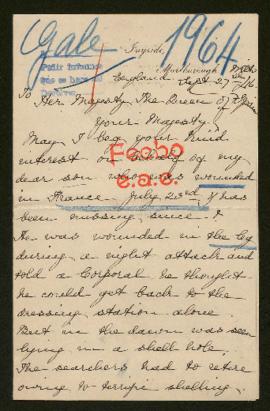 Gale
1964
Ivyside,
Marlborough
England Sept 27
To Her Majesty The Queen of Spain
Your Majesty
May I beg your kind
interest on behalf of my
dear son who was wounded
in France July 23rd & has
been missing since.
He was wounded in the leg
during a night attack and
told a Corporal he thought
he could get back to the
dressing station alone.
But in the dawn was seen
lying in a shell hole.
The searchers had to retire
owing to terrific shelling.
Fecho
e.a.e.